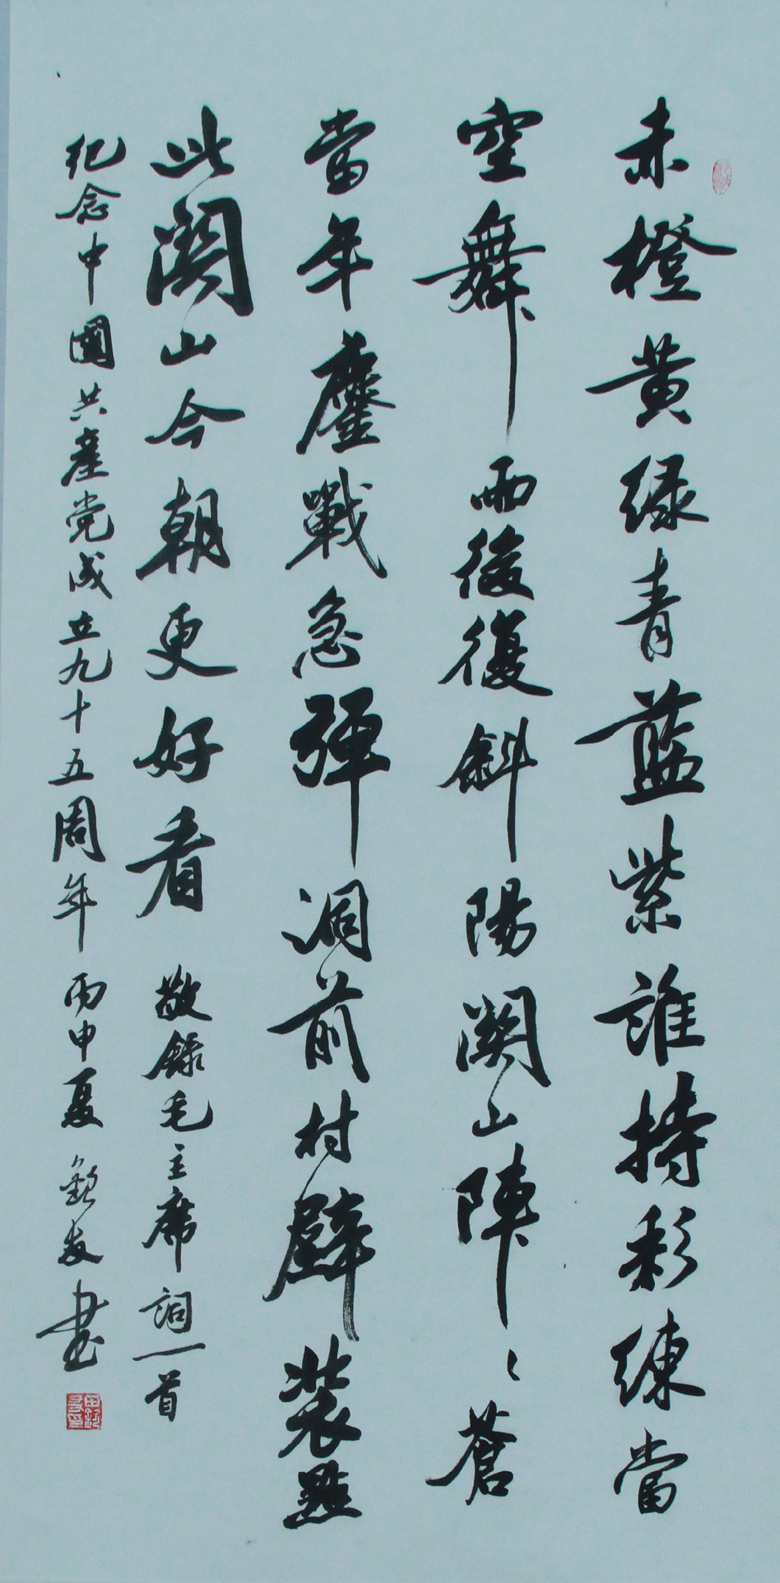 赤橙黄緑青藍紫誰持彩練當
空舞雨後復斜陽關山陣々蒼
當年鏖戰急彈洞前村壁裝點
此關山今朝更好看 敬錄毛主席詞一首
紀念中國共產党成立九十五周年 丙申夏 友書